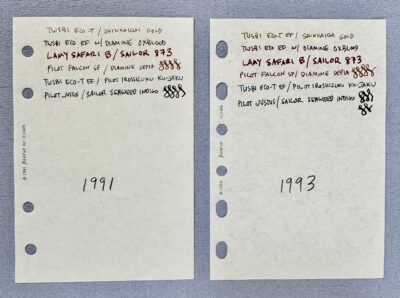 TWSBI ECO-T / SHINKAICHI GOLD
TWSBI ECO EF W/ DIAMINE OXBLOOD
LAMY SAFARI B/ SAILOR 873
PILOT FALCON SF / DIAMINE SEPIA
TWSBI ECO-T EF / PILOT IROSHIZUKU KU-JAKU
PILOT JUSTUS / SAILOR SEAWEED INDIGO
1991
TWSBI ECO-T EF / SHINKAICHI GOLD
TWSBI ECO EF W/ DIAMINE OXBLOOD
LAMY SAFARI B/ SAILOR 873
PILOT FALCON SF / DIAMINE SEPIA
TWSBI ECO-T EF / PILOT IROSHIZUKU KU-JAKU
PILOT JUSTUS / SAILOR SEAWEED INDIGO
1993